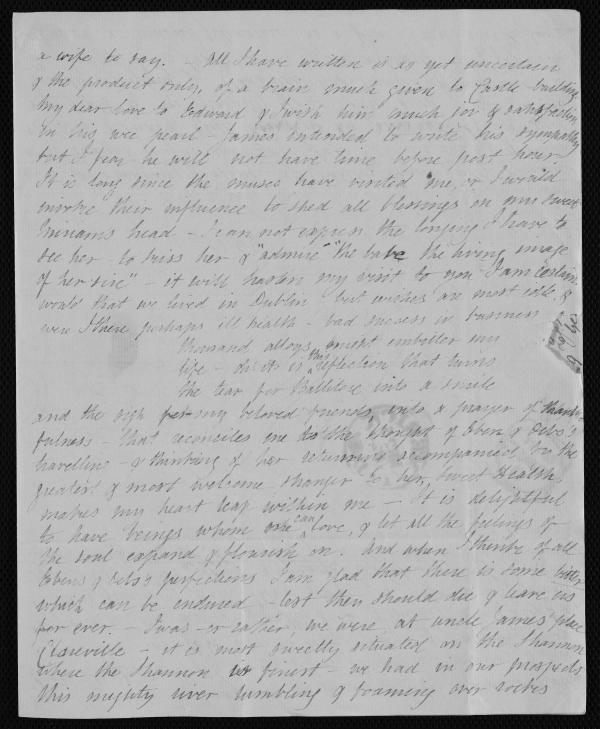 a wife to say. - All I have written is as yet uncertain
& the product only, of a brain much given to Castle building
My dear love to Edward & I wish him much joy & satisfaction
in his wee pearl - James intended to write his sympathy
but I fear he will not have time before post hour.
It is long since the muses have visited me, or I would
invoke their influence to shed all blessings on your sweet
head - I can not express the longing I have to
see her - to kiss her & "admire" "the babe the living image
of her sire" - it will hasten my visit to you I am certain
would that we lived in Dublin - but wishes are most idle &
were I there perhaps ill health - bad success in business
thousand alloys might embitter my
life - it is this reflection that turns
the tear for Ballitore into a smile
and the sigh for my beloved friends, into a prayer of thank
fulness - that reconciles me to the thought of Eben & Deb's
travelling - & thinking of her returning accompanied by the
greatest & most welcome stranger to her, sweet Health
makes my heart leap within me - It is delightful
to have beings whom one can love, & let all the feelings of
the soul expand & flourish on. And when I think of all
Eben's & Deb's perfections I am glad that there is some bitter
which can be endured - lest they should die & leave us
for ever. - I was - or rather, we were at uncle James' place
- it is most sweetly situated on the Shannon
where the Shannon is finest - we had in our prospects
this mighty river tumbling & foaming over rocks